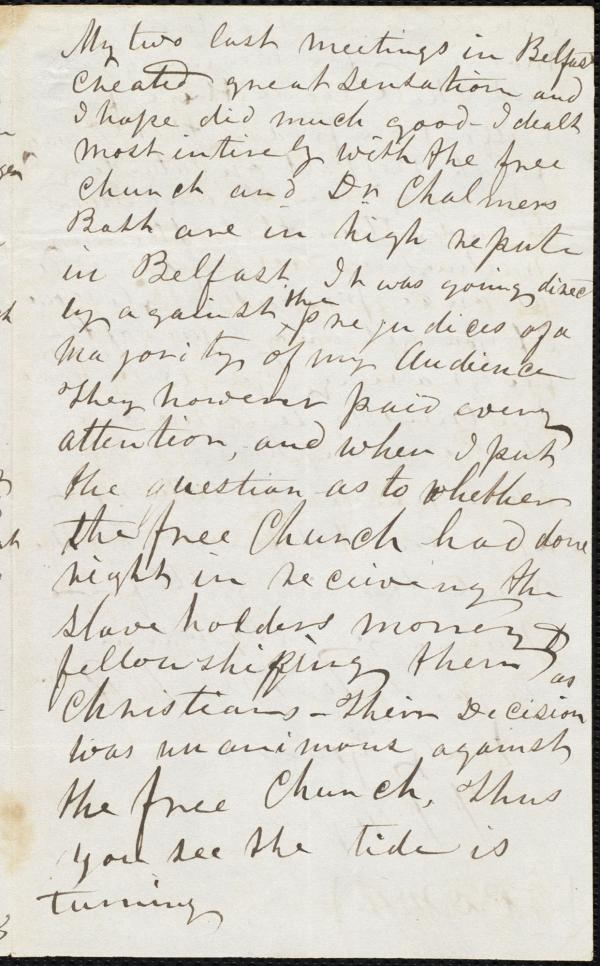 My two last meetings in Belfast
created great sensation and
I hope did much good - I dealt
most intirely with the free
church and Dr Chalmers
Both are in high repute
in Belfast. It was going direct
ly against the prejudices of a
majority of my Audience
They however paid every
attention, and when I put
the question as to whether
the free Church had done
right in receiving the
slave holders money &
fellowshiping them as
Christians - Their Decision
was unanimous against
the free Church, Thus
you see the tide is
turning